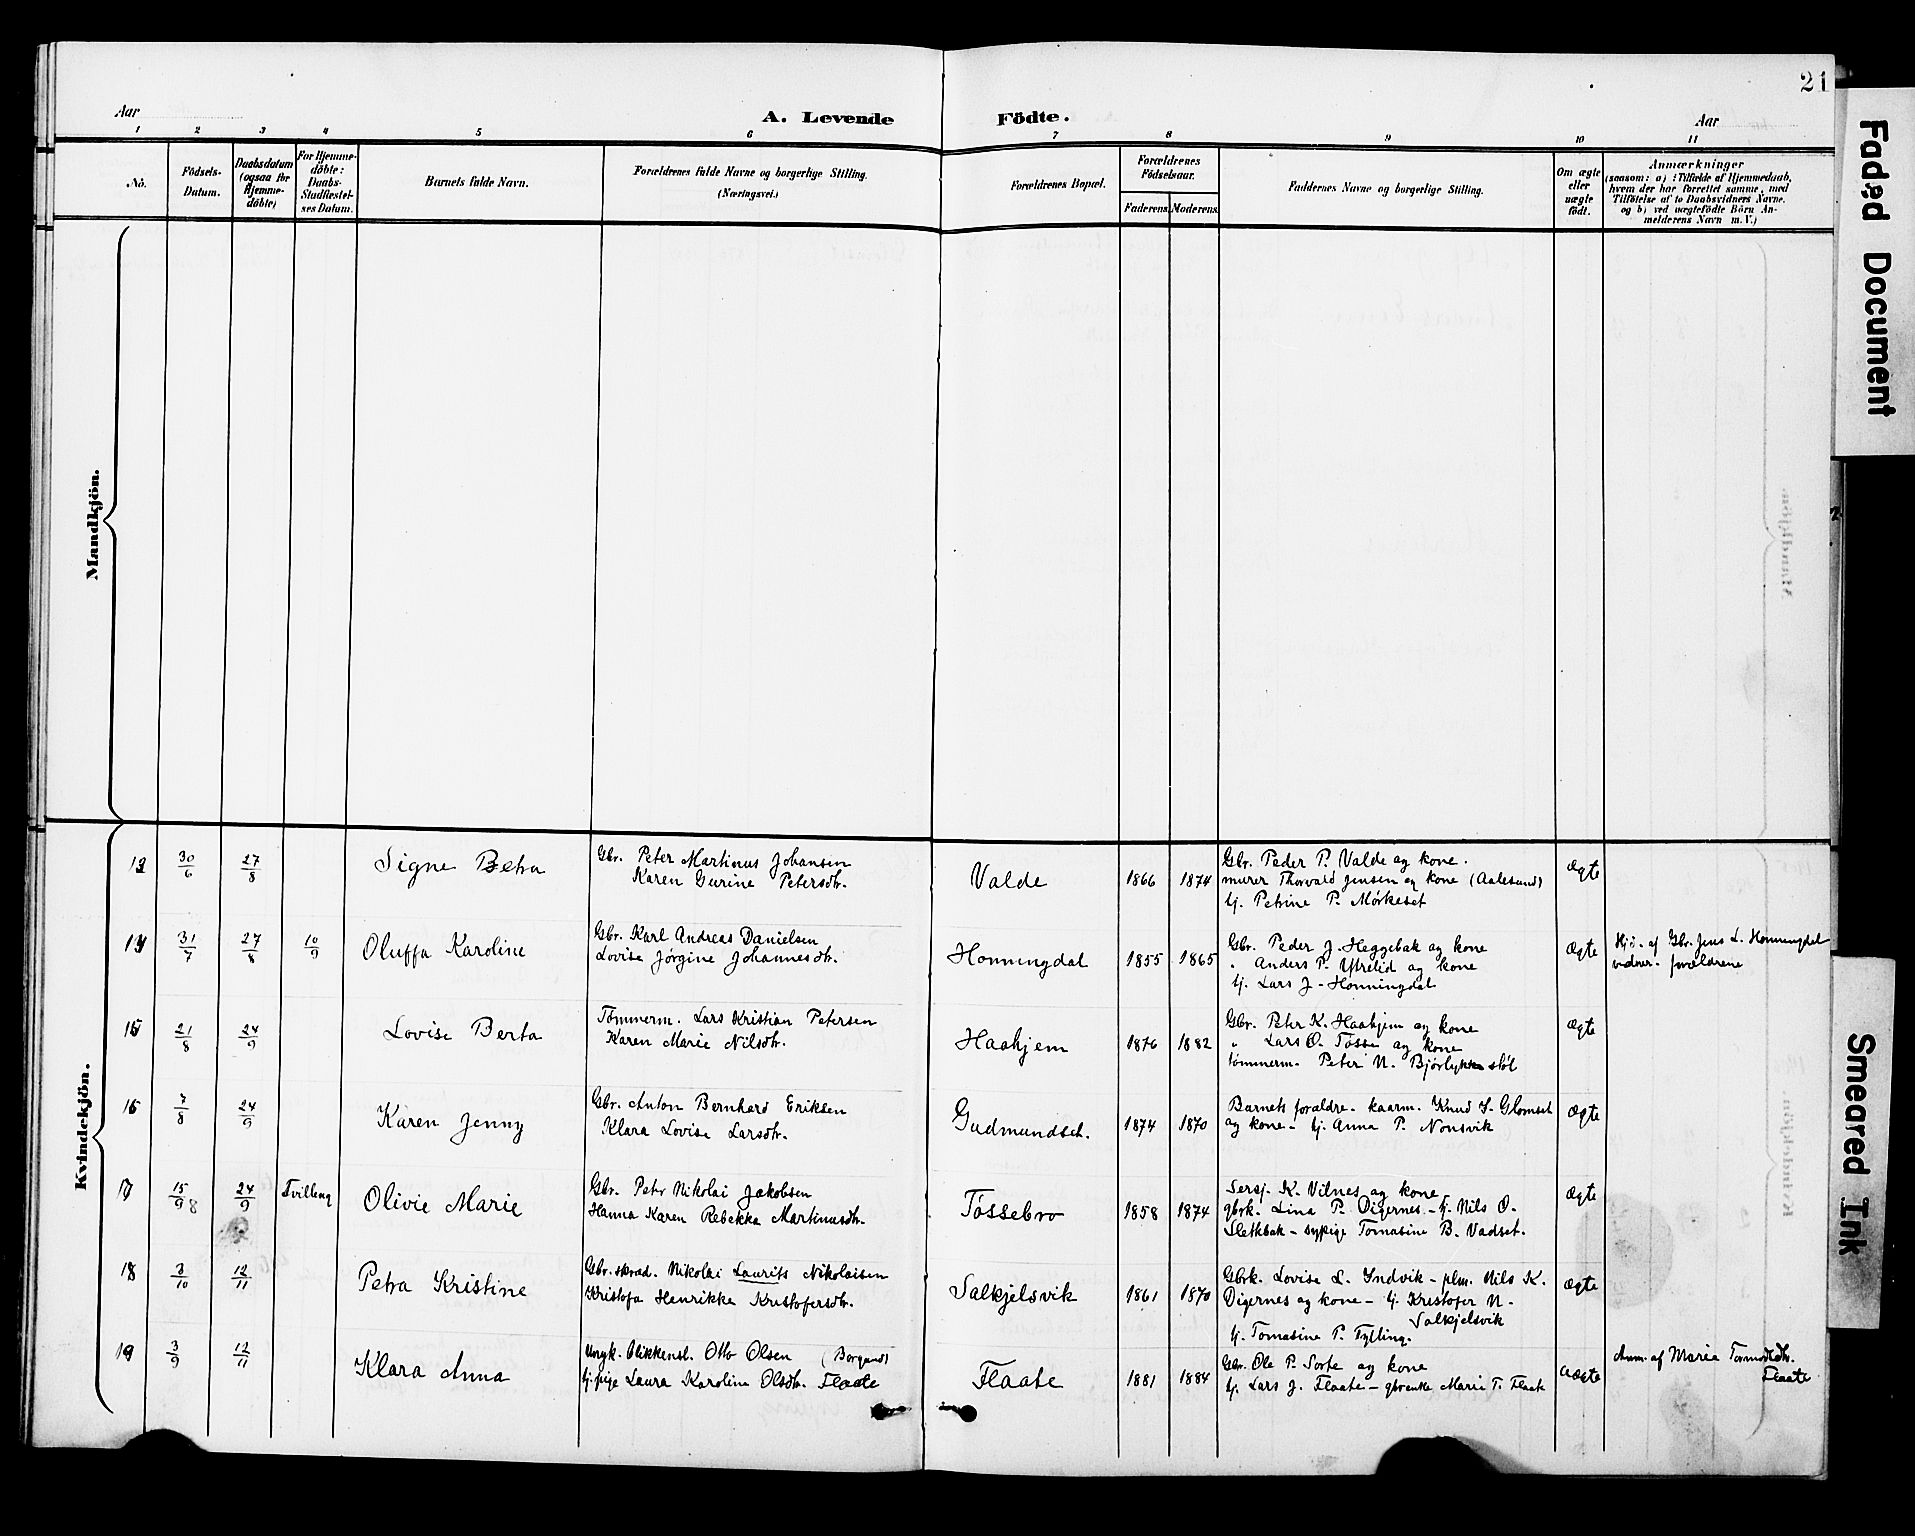 21
Aar
A. Levende Födte.
Aar
1 2 3 4 5 6 7 8 9 10 11
No.
Födsels-
Datum.
Daabsdatum
(ogsaa for
Hjemme-
döbte)
For Hjemme-
döbte:
Daabs-
Stadfæstel-
ses Datum.
Barnets fulde Navn.
Forældrenes fulde Navne og borgerlige Stilling.
(Næringsvei.)
Forældrenes Bopæl.
Forældrenes
Födselsaar.
Faderens Moderens
Faddernes Navne og borgerlige Stilling.
Om ægte
eller
uægte
födt.
Anmærkninger
(saasom: a) i Tilfælde af Hjemmedaab,
hvem der har forrettet samme, med
Tilföielse af to Daabsvidners Navne,
og b) ved uægtefödte Börn An-
melderens Navn m. V.)
Mandkjön.
Kvindekjön.
13 30/6 27/8
Signe Betra
Gbr. Peter Martinus Johansen
Karen Gurine Petersdtr.
Valde
1866 1874
Gbr. Peder P. Valde og kone.
murer Thorvald Jensen og kone (Aalesund)
tj. Petrine P. Mørkeset
Ægte
14 31/7 27/8 10/9
Oluffa Karoline
Gbr. Karl Andreas Danielsen
Lovise Jørgine Johannesdtr.
Honningdal
1855 1865
Gbr. Peder J. Heggebak og kone
" Anders P. Ytrelid og kone
tj. Lars J. Honningdal
Ægte
Hjd. af Gbr. Jens L. Honningdal
vidner. forældrene
15 21/8 24/9
Lovise Berta
Tømmerm. Lars Kristian Petersen
Karen Marie Nilsdtr.
Haahjem
1876 1882
Gbr. Peter K. Haahjem og kone
" Lars O. Tøsse og kone
tømmerm. Peter N. Bjørlykkestøl
Ægte
16 7/8 24/9
Karen Jenny
Gbr. Anton Bernhard Eriksen
Klara Lovise Larsdtr.
Gudmundset.
1874 1870
Barnets forældre - kaarm. Knud S. Glomset
og kone - tj. Anna P. Nonsvik
Ægte
17 15/9 8 24/9 Tvilling
Olivie Marie
Gbr. Petr Nikolai Jakobsen
Hanna Karen Rebekka Martinusdtr.
Tøssebro
1858 1874
Sersj. K. Vilnes og kone
gbrk. Lina P. Digernes - tj. Nils O.
Sletkbak - sypige Tomasine B. Vadset.
Ægte
18 3/10 12/11
Petra Kristine
Gbr. skræd. Nikolai Laurits Nikolaisen
Kristofa Henrikke Kristofersdtr.
Valkjelsvik
1861 1870
Gbrk. Lovise L. Indvik - plm. Nils K.
Digernes og kone - tj. Kristofer N.
Valkjelsvik
tj. Tomasine P. Tylling.
Ægte
19 3/9 12/11
Klara Anna
Ungk. Blikkensl. Otto Olsen (Borgund)
tj. pige Laura Karoline Olsdtr. Flaate
Flaate
1881 1884
Gbr. Ole P. Sorte og kone
tj. Lars J. Flaate - gbrenke Marie T. Flaate
Uægte
Anm. af Maria Tormodsdtr.
Flaate
Faded Document
Smeared Ink